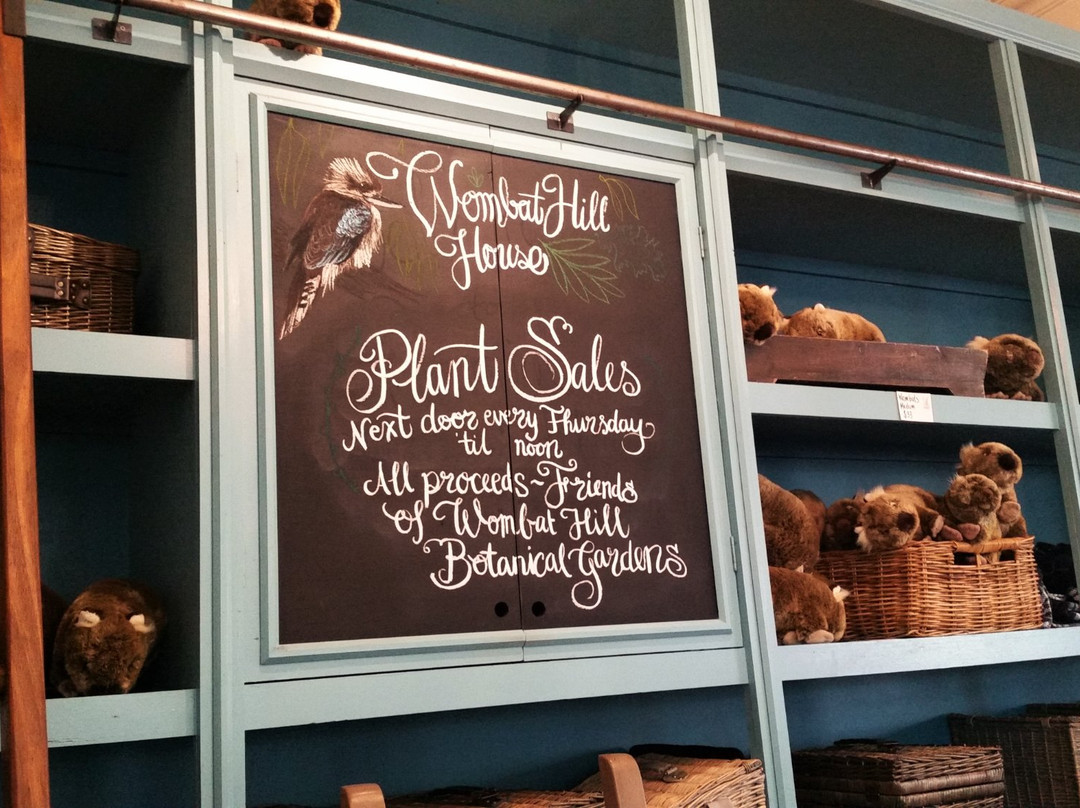 Wombat Hill
House
Plant Sales
Next door every Thursday
'til noon
All proceeds ~ Friends
of Wombat Hill
Botanical Gardens